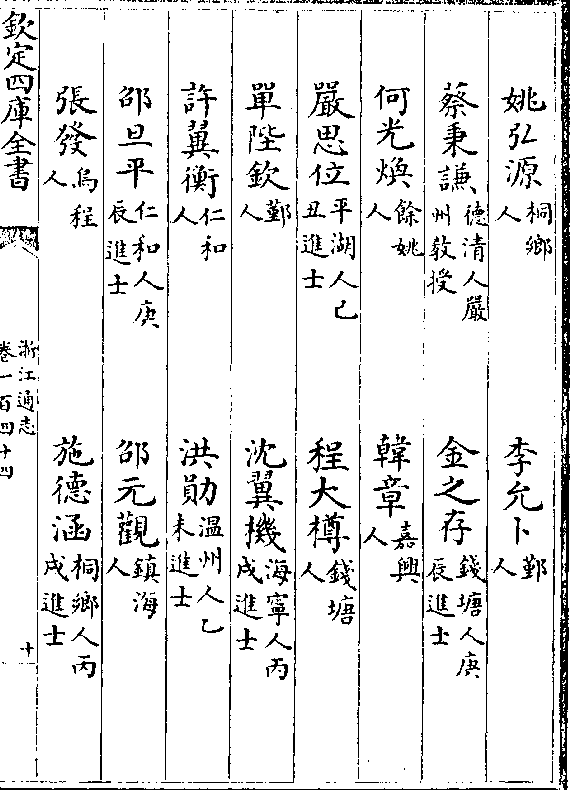 姚弘源桐鄉人　李允卜鄞人
蔡秉謙德清人嚴州教授　金之存錢塘人庚辰進士
何光煥餘姚人　韓章嘉興人
嚴思位平湖人己丑進士　程大樽錢塘人
單陛欽鄞人　沈翼機海寧人丙戌進士
許翼衡仁和人　洪勛温州人乙未進士
邵旦平仁和人庚辰進士　邵元觀鎮海人
張發烏程人　施德涵桐鄉人丙戌進士
欽定四庫全書　浙江通志卷一百四十四　十